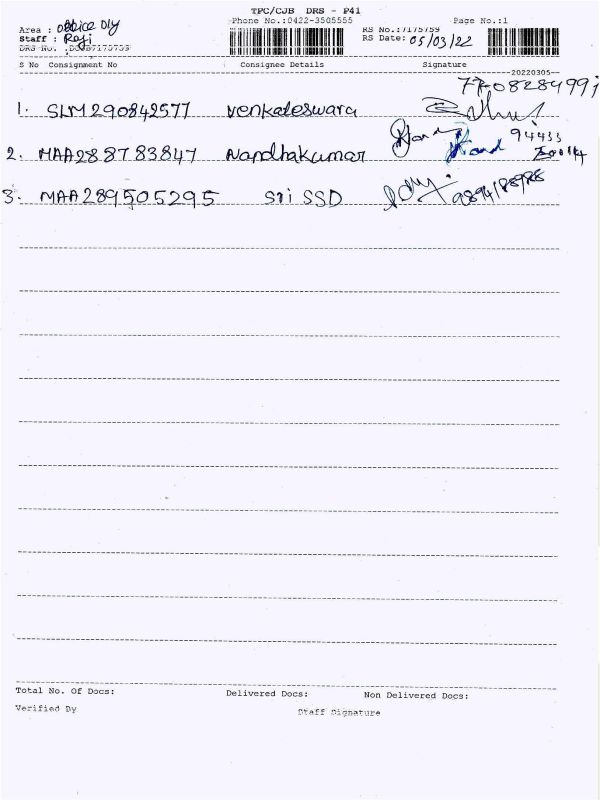 TPC/CJB DRS - P41
Area : office Dly
Phone No.:0422-3505555
Page No.:1
Staff : Raji
RS No.:7175759
RS Date: 05/03/22
DRS No. :DCJB7175759
S No Consignment No Consignee Details Signature
20220305
1. SLM290842577 Venkateswara
2. MAA288783847 Nandhakumar
3. MAA289505295 Sri SSD
Total No. Of Docs: Delivered Docs: Non Delivered Docs:
Verified By Staff Signature